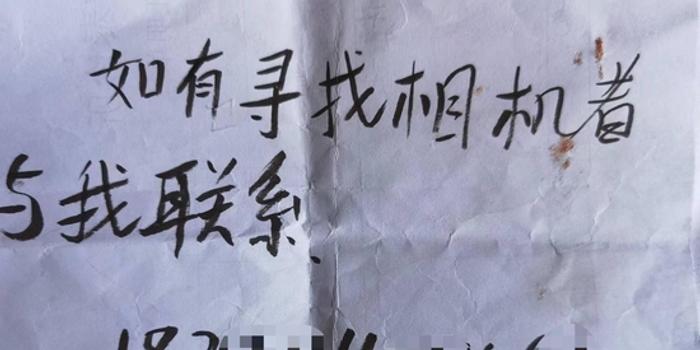 如有寻找相机者
与我联系.